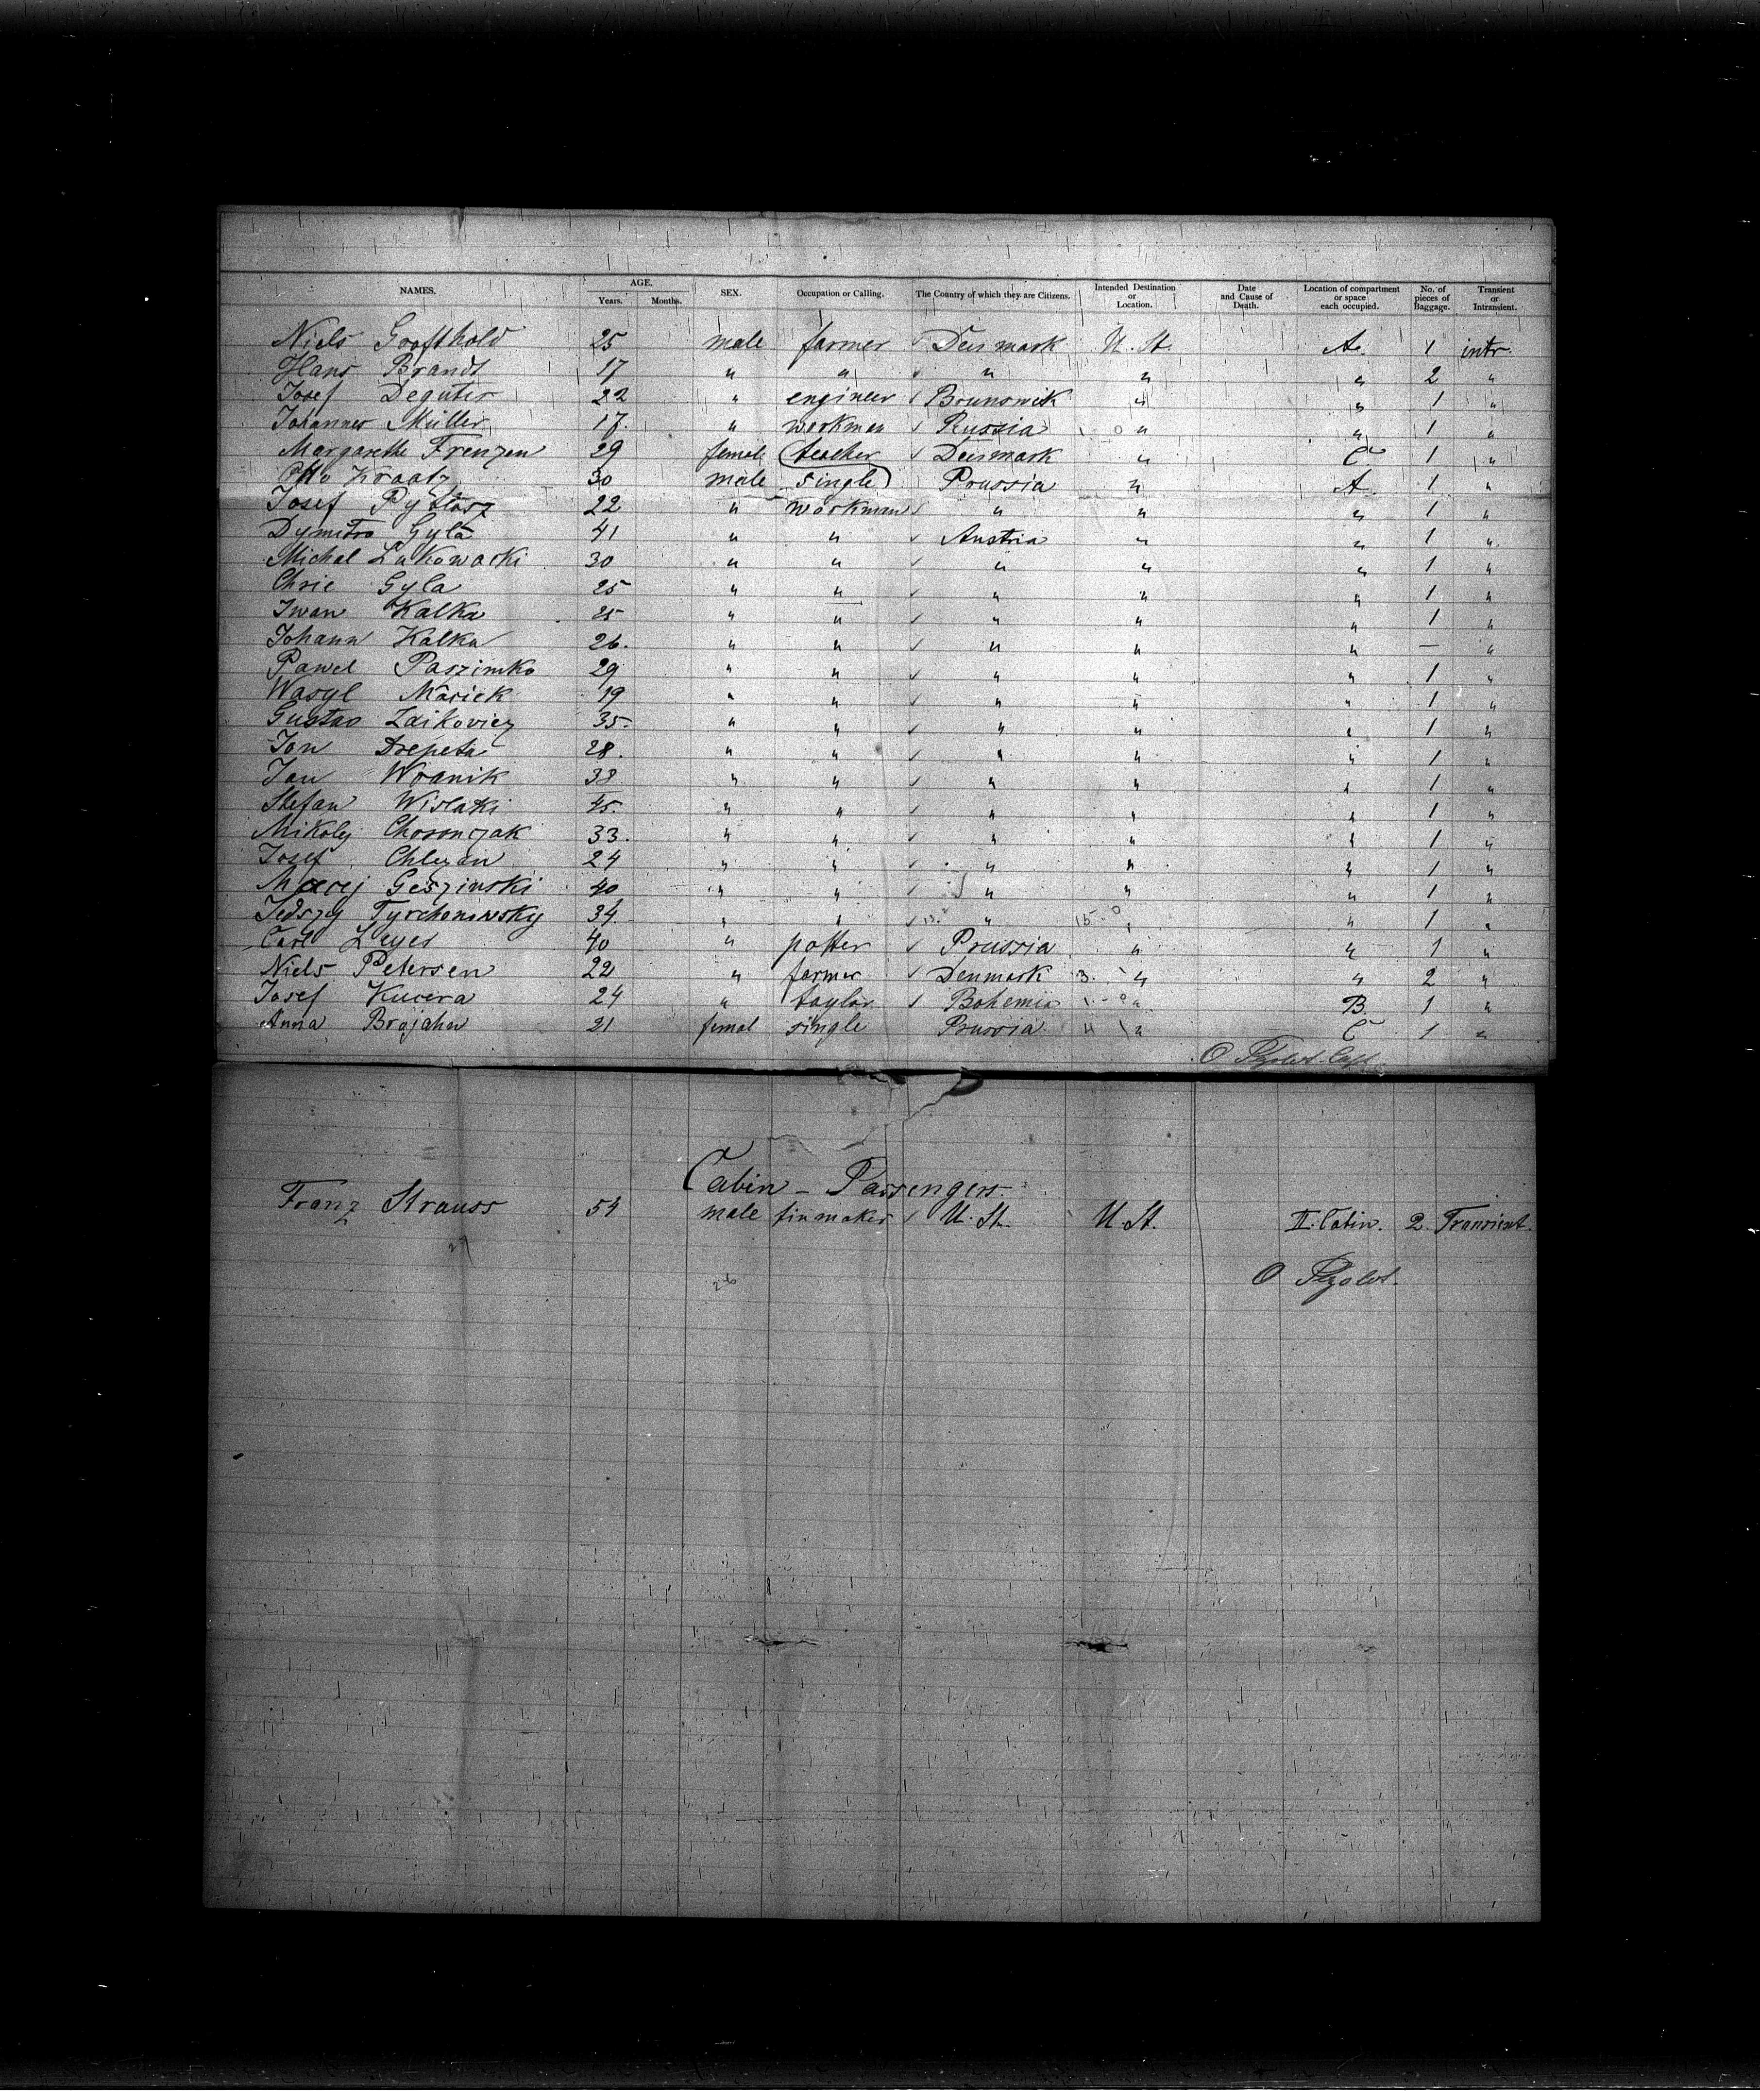 NAMES. AGE. Years. Months. SEX. Occupation or Calling. The Country of which they are Citizens. Intended Destination or Location. Date and Cause of Death. Location of compartment or space each occupied. No. of pieces of Baggage. Transient or Intransient.
Niels 25 male farmer ✓ Denmark U. St. A. 1 intr.
Hans Brandt 17 " " ✓ " " " 2 "
Josef Deguter 22 " engineer ✓ Brunswik " " 1 "
Johannes Müller 17. " workman ✓ Russia " " 1 "
Margarethe Frenzen 29 female teacher ✓ Denmark " C 1 "
Otto Kraatz 30 male single Prussia " A 1 "
Josef 22 " workman ✓ " " " 1 "
Dymitro Gyla 41 " " ✓ Austria " " 1 "
Michal Lukowacki 30 " " ✓ " " " 1 "
Chrie Gyla 25 " " ✓ " " " 1 "
Iwan Kalka 25 " " ✓ " " " 1 "
Johann Kalka 26. " " ✓ " " " — "
Pawel Paszimko 29 " " ✓ " " " 1 "
Wasyl Masick 19 " " ✓ " " " 1 "
Gustav 35. " " ✓ " " " 1 "
Jan 28. " " ✓ " " " 1 "
Jan Woanik 38 " " ✓ " " " 1 "
Stefan Wislaki 45. " " ✓ " " " 1 "
Mikoly 33. " " ✓ " " " 1 "
Josef Chlezan 24 " " ✓ " " " 1 "
Macej Geszinski 40 " " ✓ " " " 1 "
34. " " ✓ " 15. " " 1 "
Carl Leyes 40 " potter ✓ Prussia " " 1 "
Niels Petersen 22 " farmer ✓ Denmark 3. " " 2 "
Josef Kucera 24 " taylor ✓ Bohemia " B. 1 "
Anna Brojahn 21 femal single Prussia " C 1 "
Cabin - Passengers.
Franz Strauss 54 male tinmaker ✓ U. St. U. St. II. Cabin. 2 Transient.
26